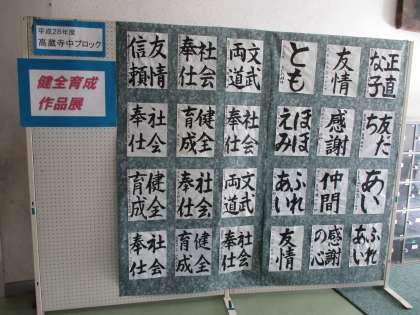 平成28年度
高蔵寺中ブロック
健全育成
作品展
正直
な子
友情
とも
文武
両道
社会
奉仕
友情
信頼
友だ
ち
感謝
ほほ
えみ
社会
奉仕
健全
育成
社会
奉仕
あい
仲間
ふれ
あい
文武
両道
社会
奉仕
健全
育成
ふれ
あい
感謝
の心
友情
社会
奉仕
健全
育成
社会
奉仕